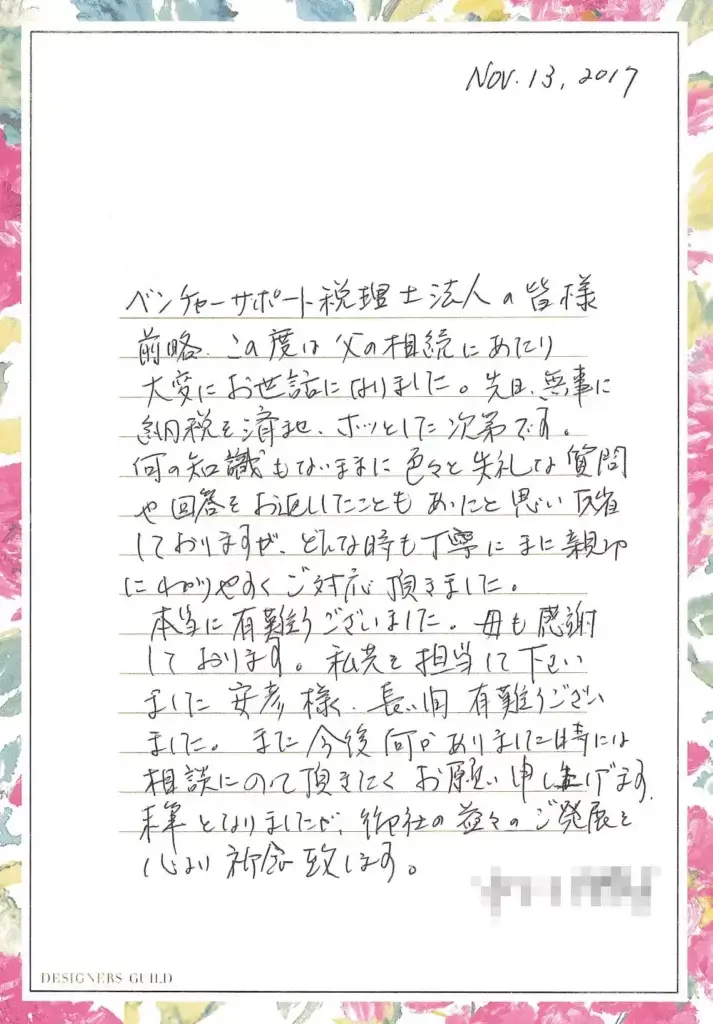 Nov. 13, 2017
ベンチャーサポート税理士法人の皆様
前略、この度は父の相続にあたり
大変にお世話になりました。先日、無事に
納税を済ませ、ホッとした次第です。
何の知識もないままに色々と失礼な質問
や回答をお返ししたこともあったと思い反省
しておりますが、どんな時も丁寧にまた親切
にわかりやすくご対応頂きました。
本当に有難うございました。母も感謝
しております。私共を担当して下さい
ました安彦様、長い間有難うござい
ました。また今後何かありました時には
相談にのって頂きたくお願い申し上げます。
末筆となりましたが、御社の益々のご発展を
心より祈念致します。
DESIGNERS GUILD